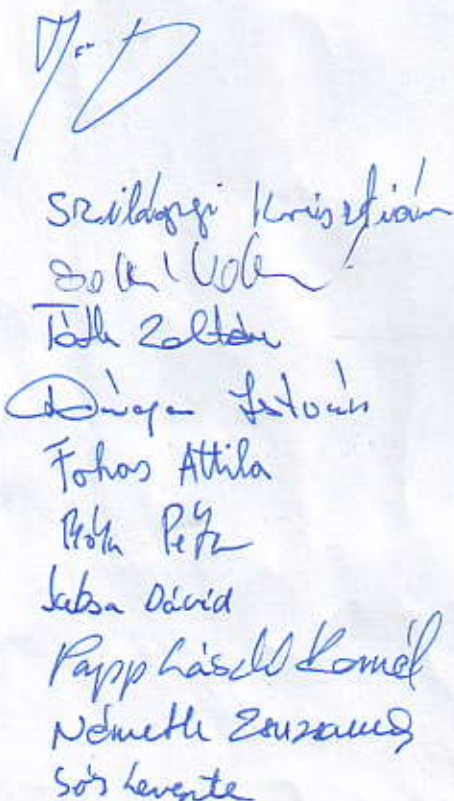 Szilágyi Krisztián
Tóth Zoltán
István
Fokas Attila
Róth Péter
Jabsa Dávid
Papp László Kornél
Németh Zsuzsanna
Sós Levente